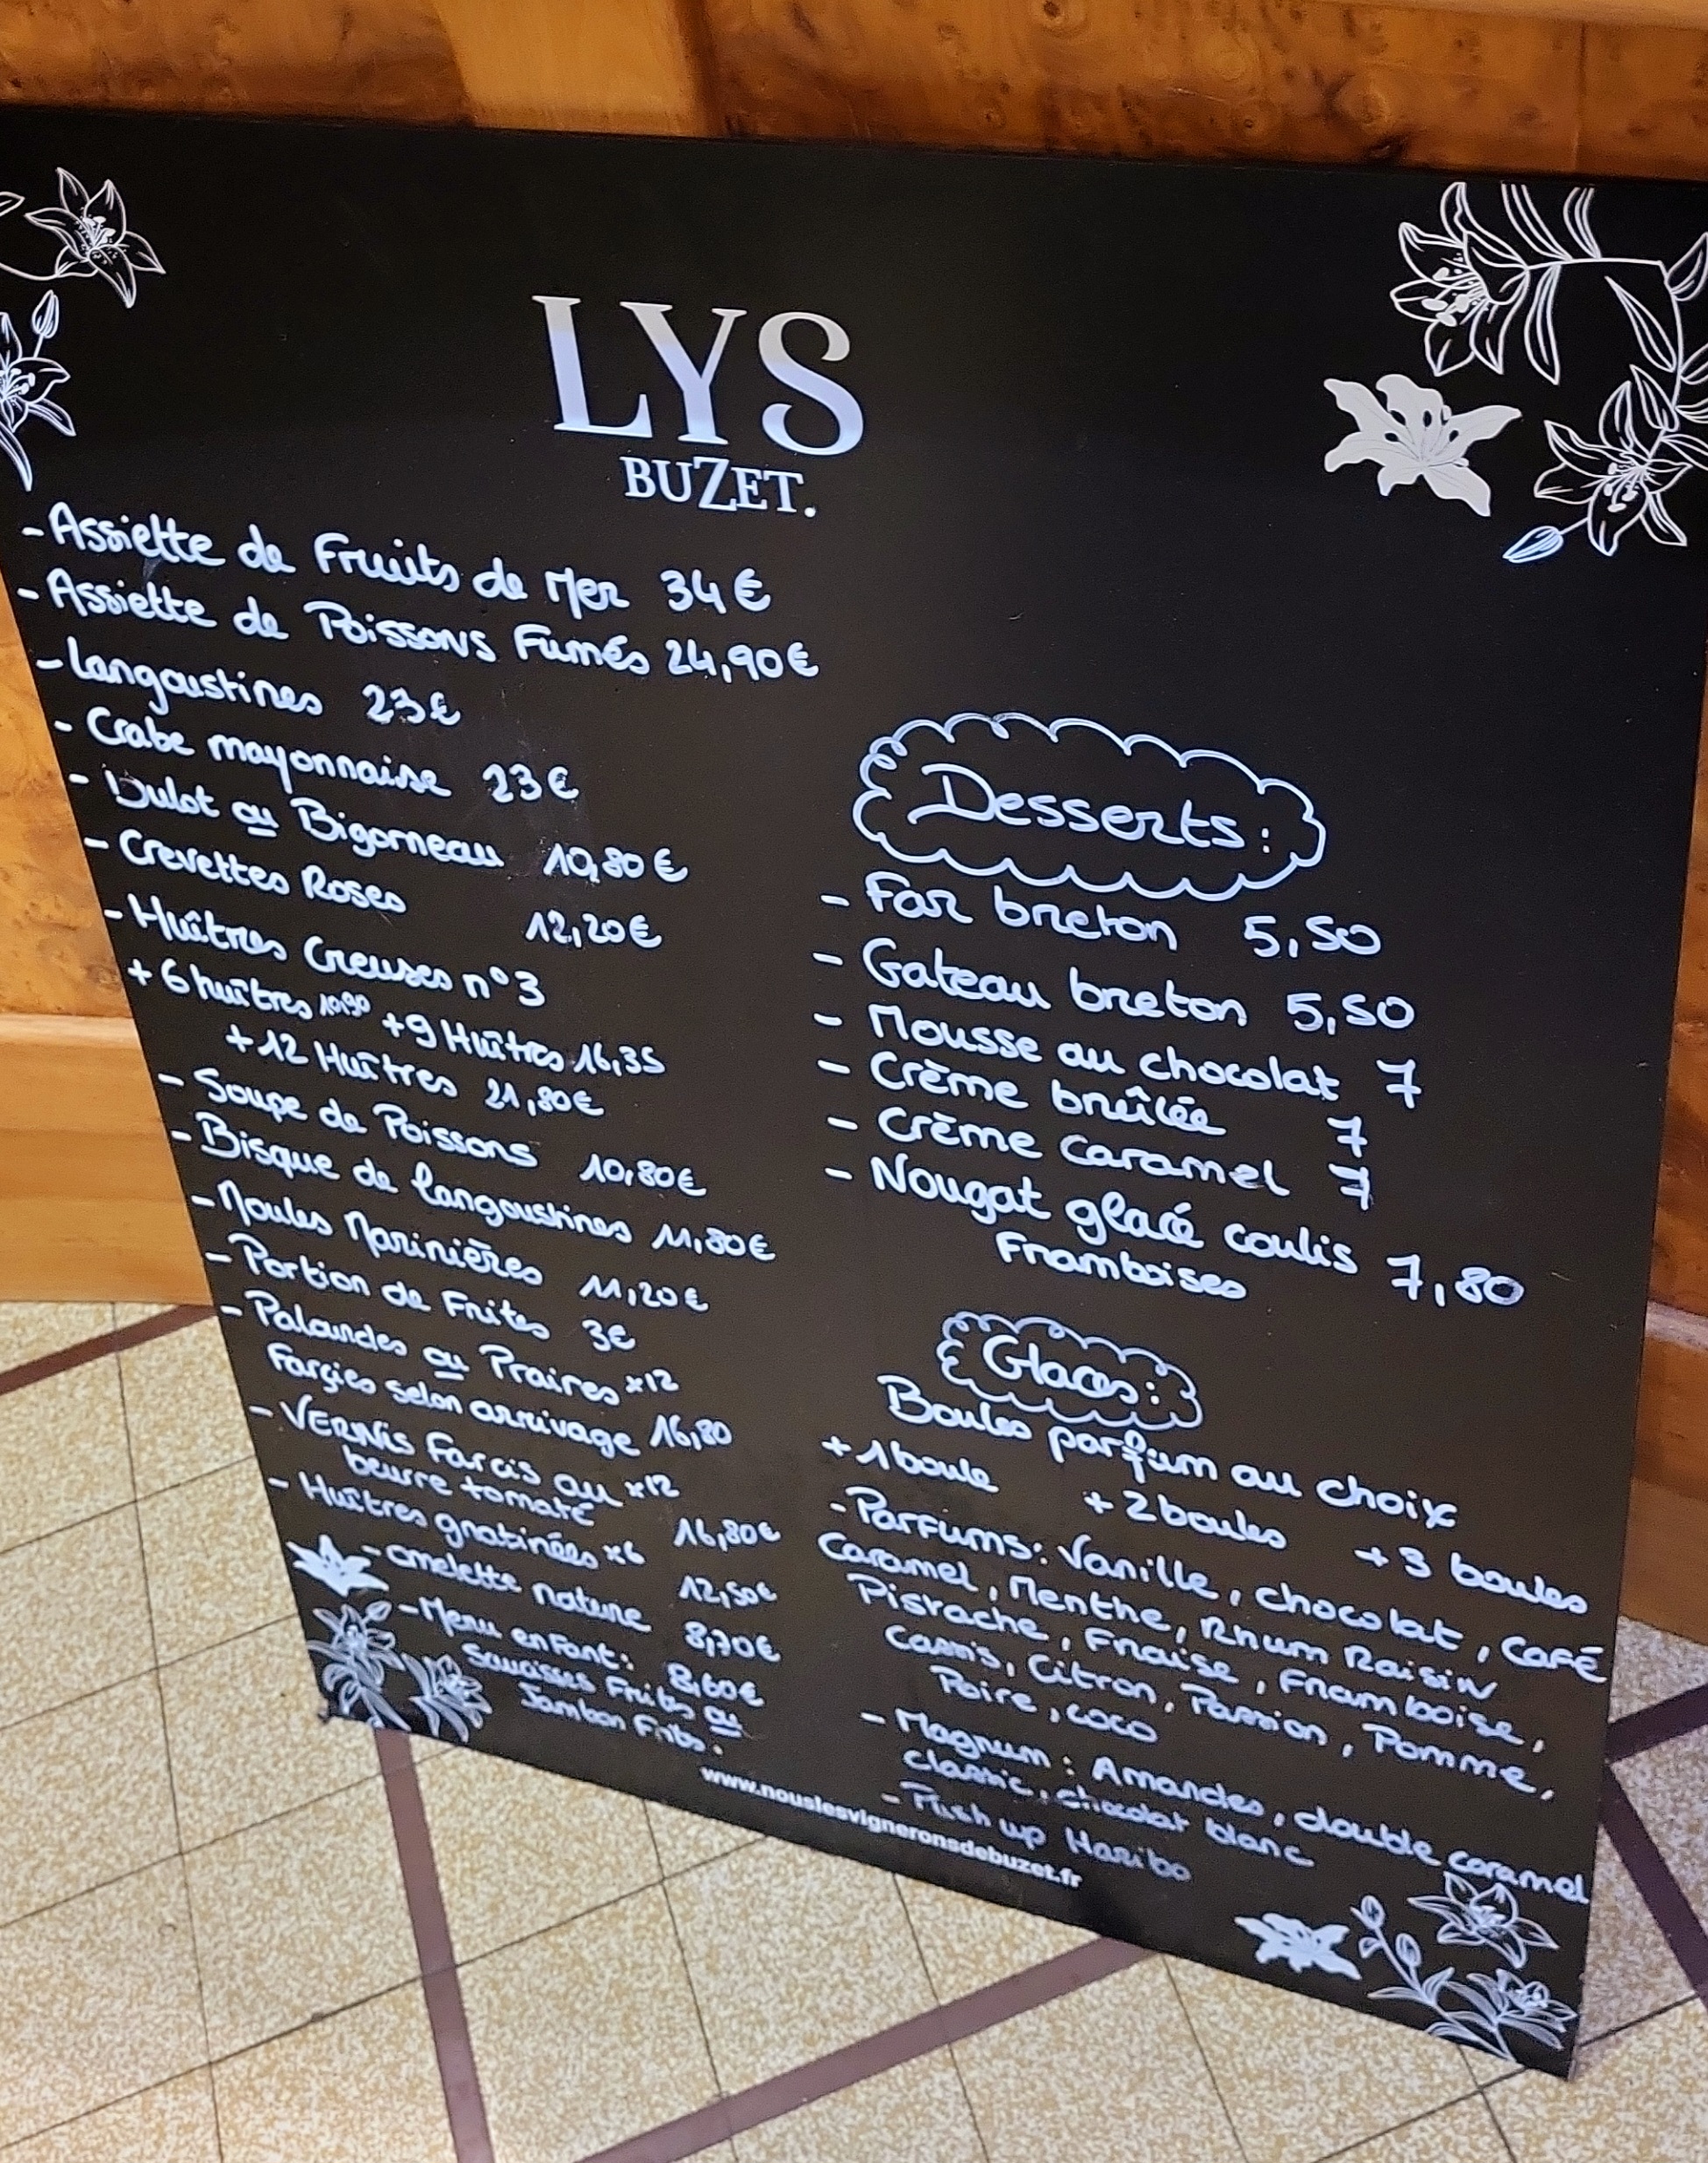 LYS
BUZET.
- Assiette de Fruits de Mer 34€
- Assiette de Poissons Fumés 24,90€
- Langoustines 23€
- Crabe mayonnaise 23€
- Bulot ou Bigorneau 10,80€
- Crevettes Roses 12,20€
- Huîtres Creuses n°3
+ 6 huîtres 10,90 + 9 Huîtres 16,35
+ 12 Huîtres 21,80€
- Soupe de Poissons 10,80€
- Bisque de langoustines 11,80€
- Moules Marinières 11,20€
- Portion de Frites 3€
- Palourdes ou Praires x12
Farçies selon arrivage 16,80
- VERNIS Farcis au x12
beurre tomate 16,80€
- Huîtres gratinées x6 12,50€
- omelette nature 8,70€
- Menu enfant: 8,60€
Saucisses Frites ou
Jambon Frites.
Desserts:
- Far breton 5,50
- Gateau breton 5,50
- Mousse au chocolat 7
- Crème brûlée 7
- Crème caramel 7
- Nougat glacé coulis 7,80
Framboises
Glaces:
Boules parfum au choix
+ 1 boule + 2 boules + 3 boules
- Parfums: Vanille, chocolat, Café
Caramel, Menthe, Rhum Raisin
Pistache, Fraise, Framboise,
Cassis, Citron, Passion, Pomme,
Poire, coco
- Magnum: Amandes, double caramel
classic, chocolat blanc
- Push up Haribo
www.nouslesvigneronsdebuzet.fr